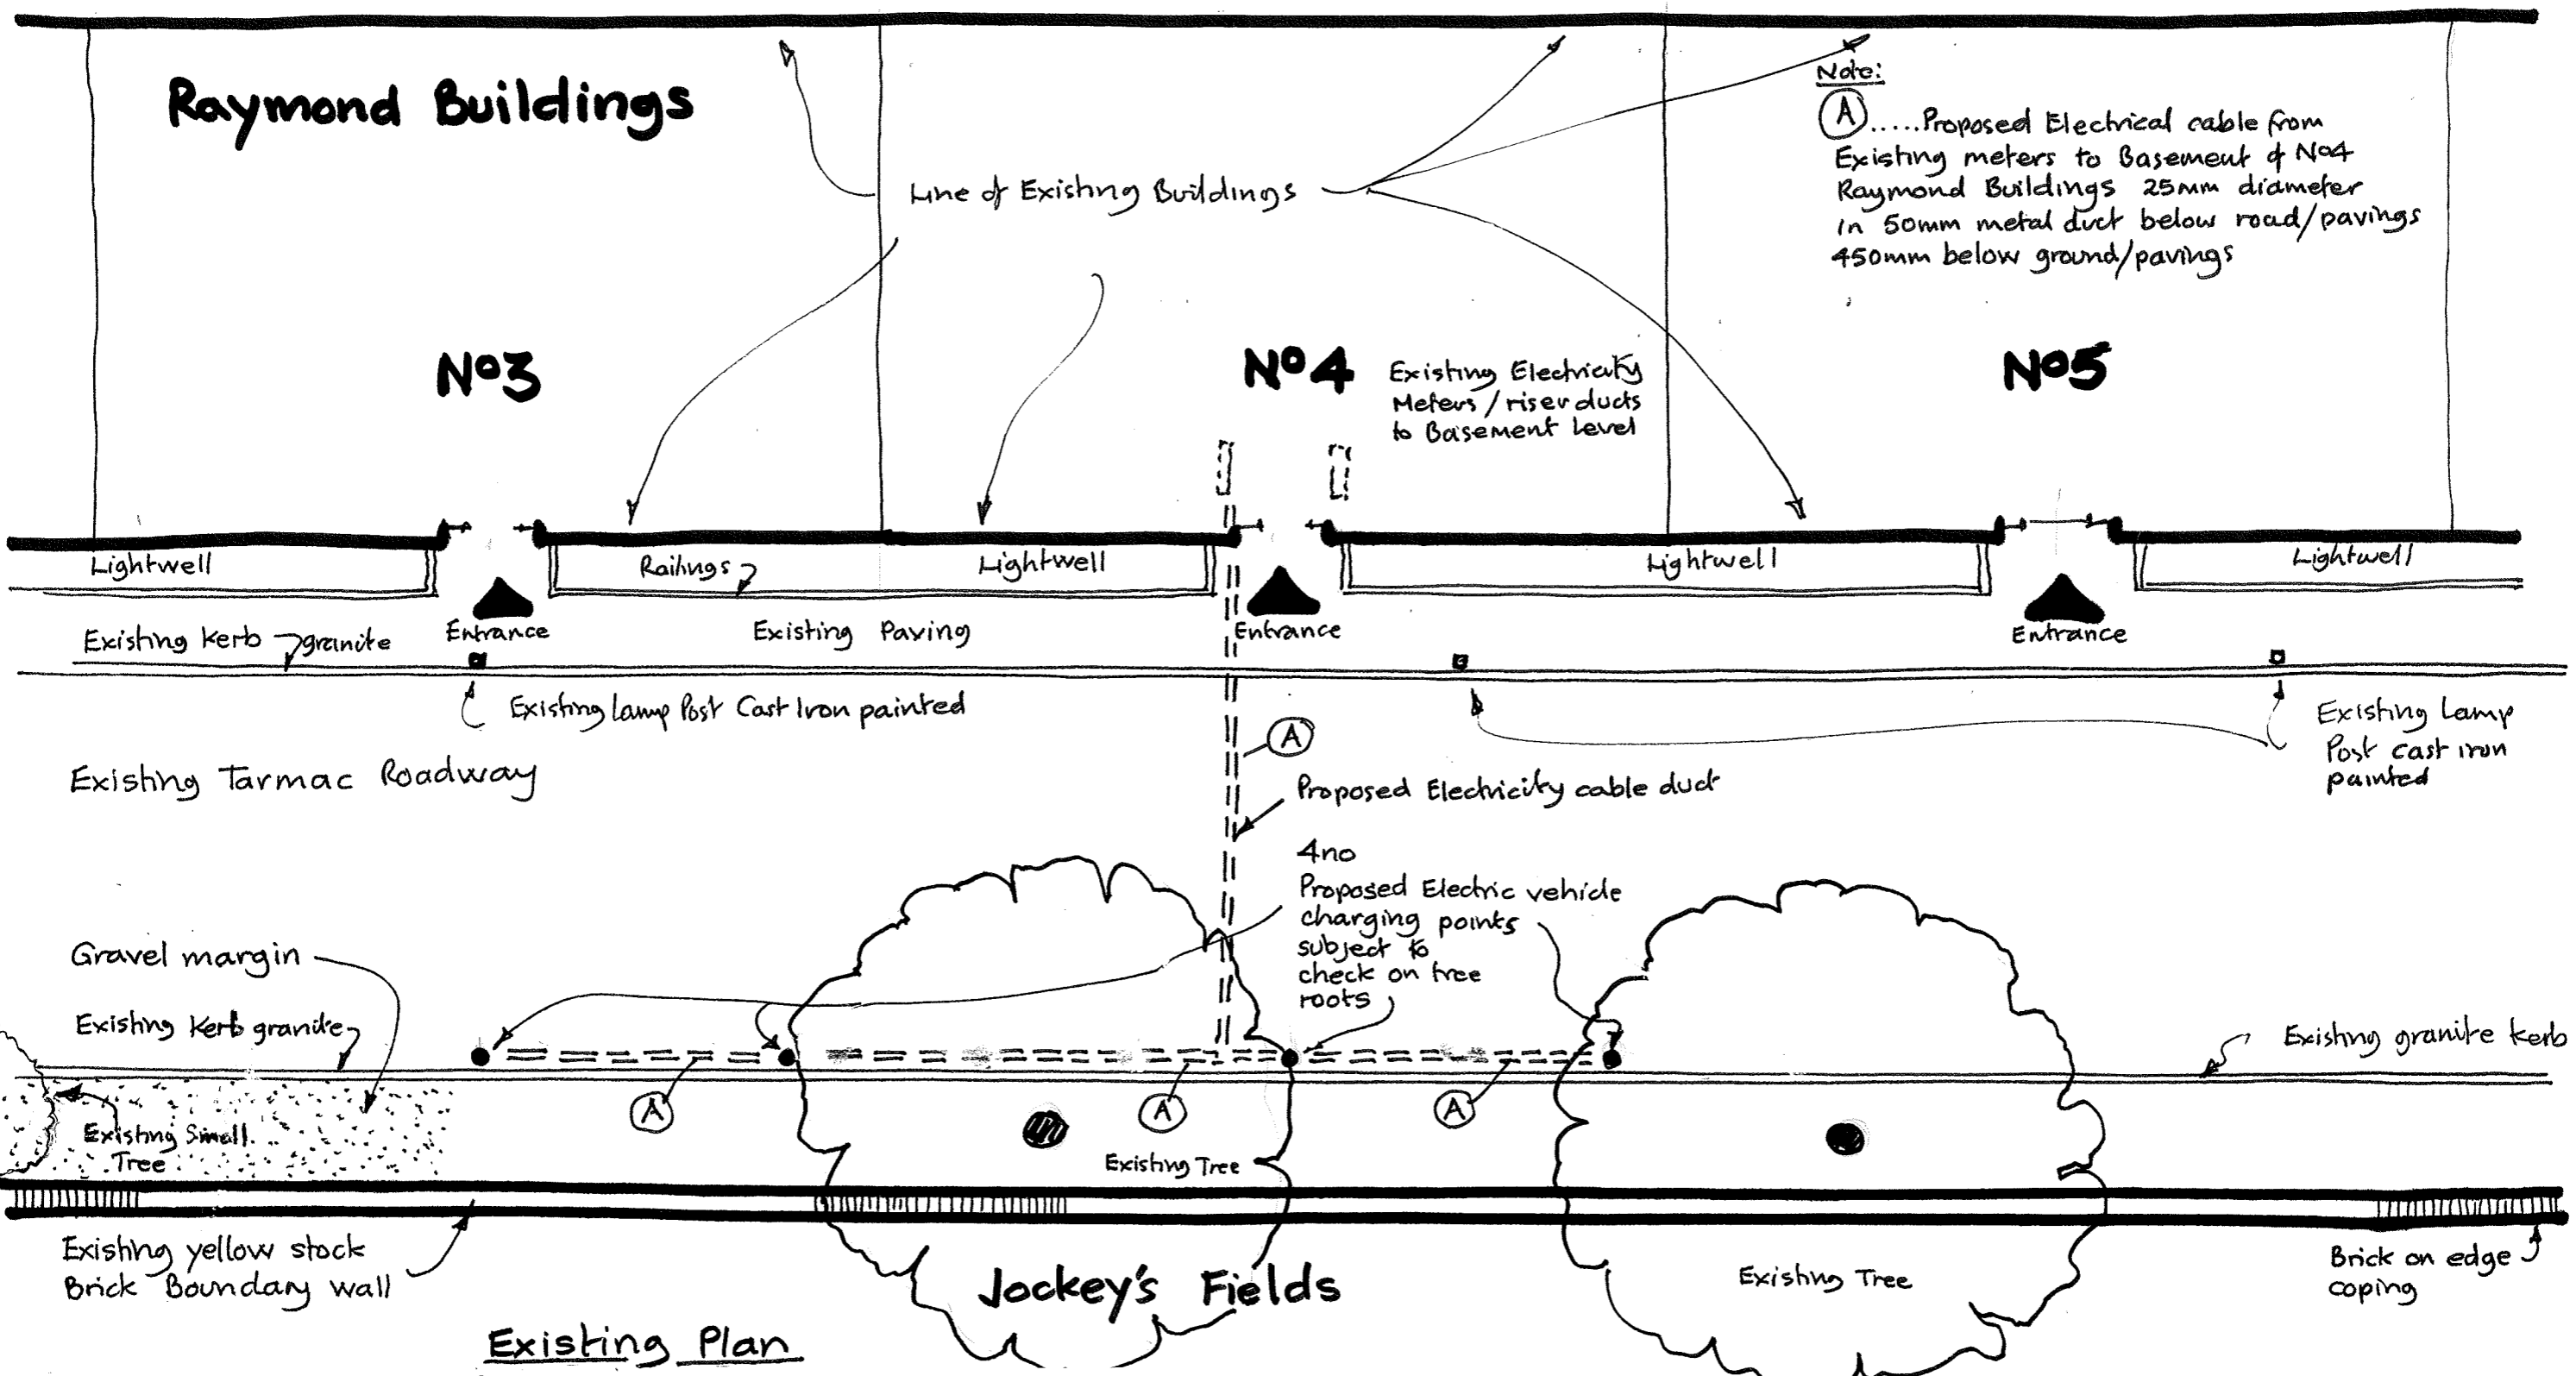 Raymond Buildings
Note:
A.....Proposed Electrical cable from
Existing meters to Basement of No4
Raymond Buildings 25mm diameter
in 50mm metal duct below road/pavings
450mm below ground/pavings
Line of Existing Buildings
No3
No4
Existing Electricity
Meters/riser ducts
to Basement Level
No5
Lightwell
Railings
Lightwell
Lightwell
Lightwell
Existing Kerb granite
Entrance
Existing Paving
Entrance
Entrance
Existing Lamp Post Cast Iron painted
Existing Lamp
Post cast iron
painted
A
Existing Tarmac Roadway
Proposed Electricity cable duct
4no
Proposed Electric vehicle
charging points
subject to
check on tree
roots
Gravel margin
Existing Kerb granite
Existing granite Kerb
A
A
A
Existing Small
Tree
Existing Tree
Existing yellow stock
Brick Boundary wall
Jockey's Fields
Existing Tree
Brick on edge
coping
Existing Plan